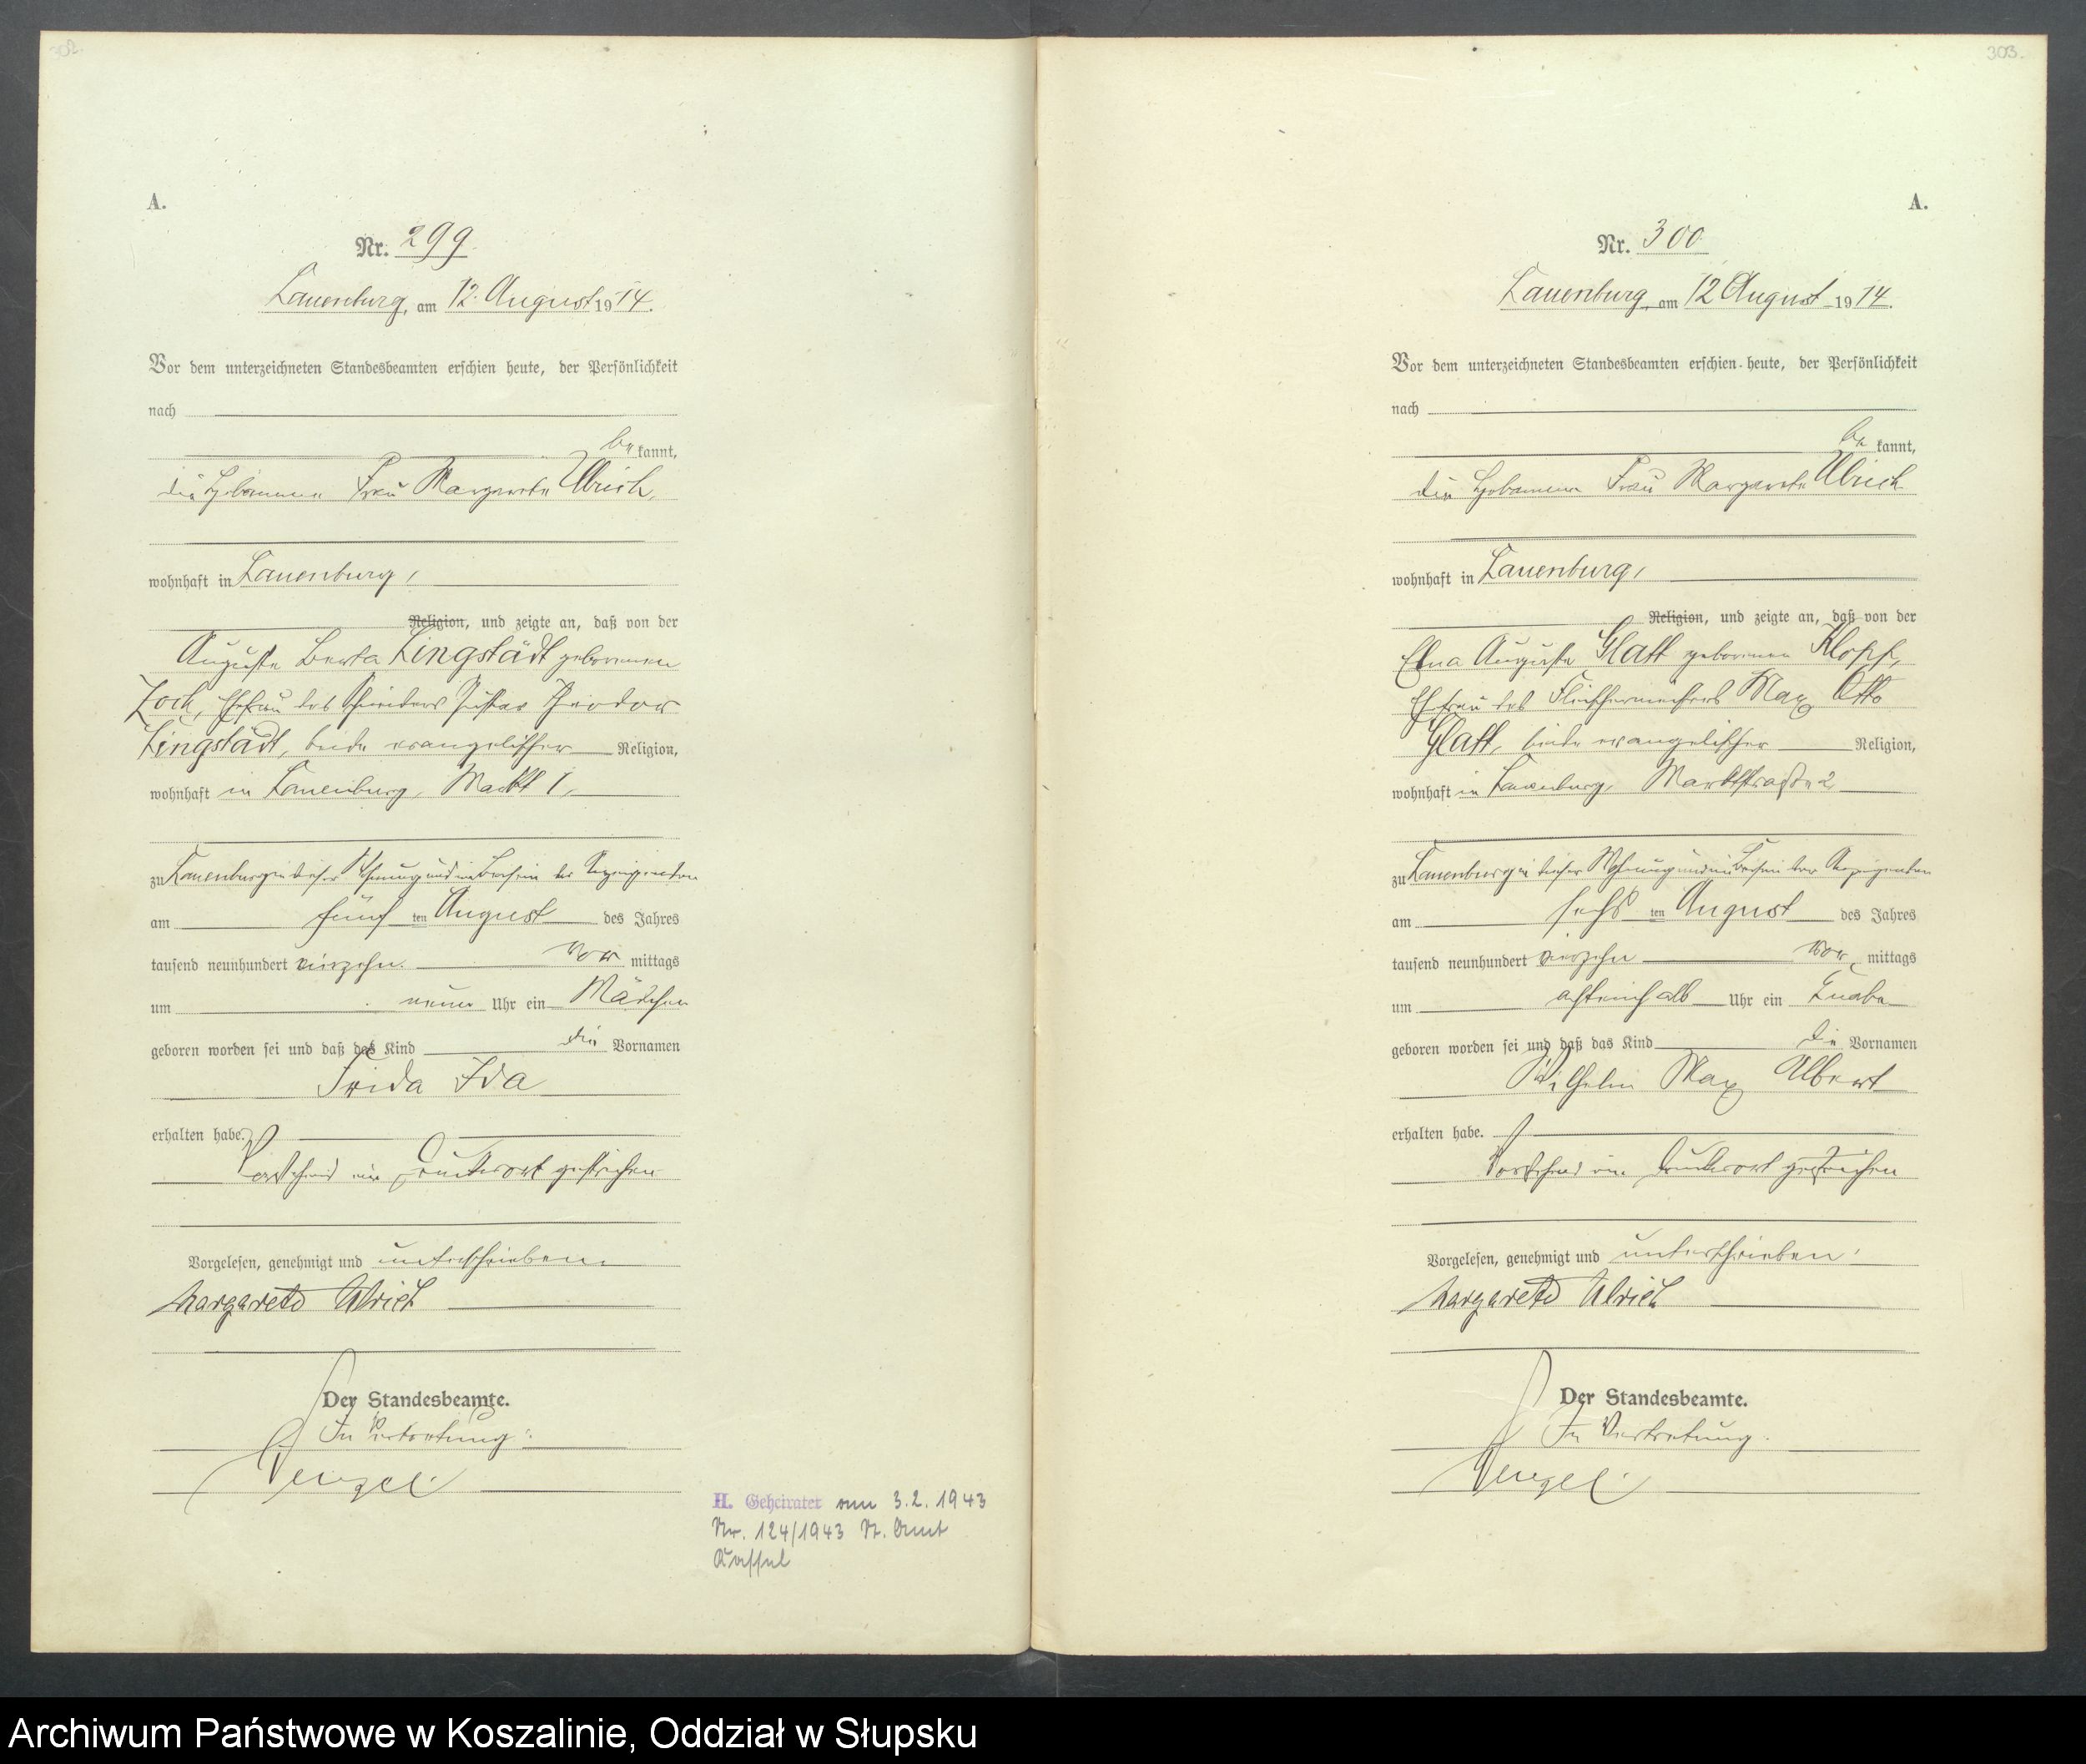 302.
A.
Nr. 299.
Lauenburg, am 12. August 1914.
Vor dem unterzeichneten Standesbeamten erschien heute, der Persönlichkeit
nach
be kannt,
die Hebamme Frau Margarete Ulrich,
wohnhaft in Lauenburg,
Religion, und zeigte an, daß von der
Auguste Berta Lingstädt geborenen
Zoch, Ehefrau des Schneiders Gustav Theodor
Lingstädt, beide evangelischer Religion,
wohnhaft in Lauenburg, Markt 1,
zu Lauenburg in dieser Wohnung und im Beisein der Anzeigenden
am fünf ten August des Jahres
tausend neunhundert vierzehn vor mittags
um neun Uhr ein Mädchen
geboren worden sei und daß das Kind die Vornamen
Frida Ida
erhalten habe.
Vorstehend ein Druckwort gestrichen
Vorgelesen, genehmigt und unterschrieben.
Margarete Ulrich
Der Standesbeamte.
In Vertretung:
H. Geheiratet am 3.2.1943
Nr. 124/1943 St. Amt
Kassel
303.
A.
Nr. 300
Lauenburg, am 12 August 1914.
Vor dem unterzeichneten Standesbeamten erschien heute, der Persönlichkeit
nach
be kannt,
die Hebamme Frau Margarete Ulrich
wohnhaft in Lauenburg,
Religion, und zeigte an, daß von der
Auguste Glatt geborenen Klopf,
Ehefrau des Fleischermeisters Max Otto
Glatt, beide evangelischer Religion,
wohnhaft in Lauenburg, Marktstraße 2
zu Lauenburg in dieser Wohnung und im Beisein der Anzeigenden
am sechs ten August des Jahres
tausend neunhundert vierzehn vor mittags
um achteinhalb Uhr ein Knabe
geboren worden sei und daß das Kind die Vornamen
Wilhelm Max Albert
erhalten habe.
Vorstehend ein Druckwort gestrichen
Vorgelesen, genehmigt und unterschrieben.
Margarete Ulrich
Der Standesbeamte.
In Vertretung.
Archiwum Państwowe w Koszalinie, Oddział w Słupsku